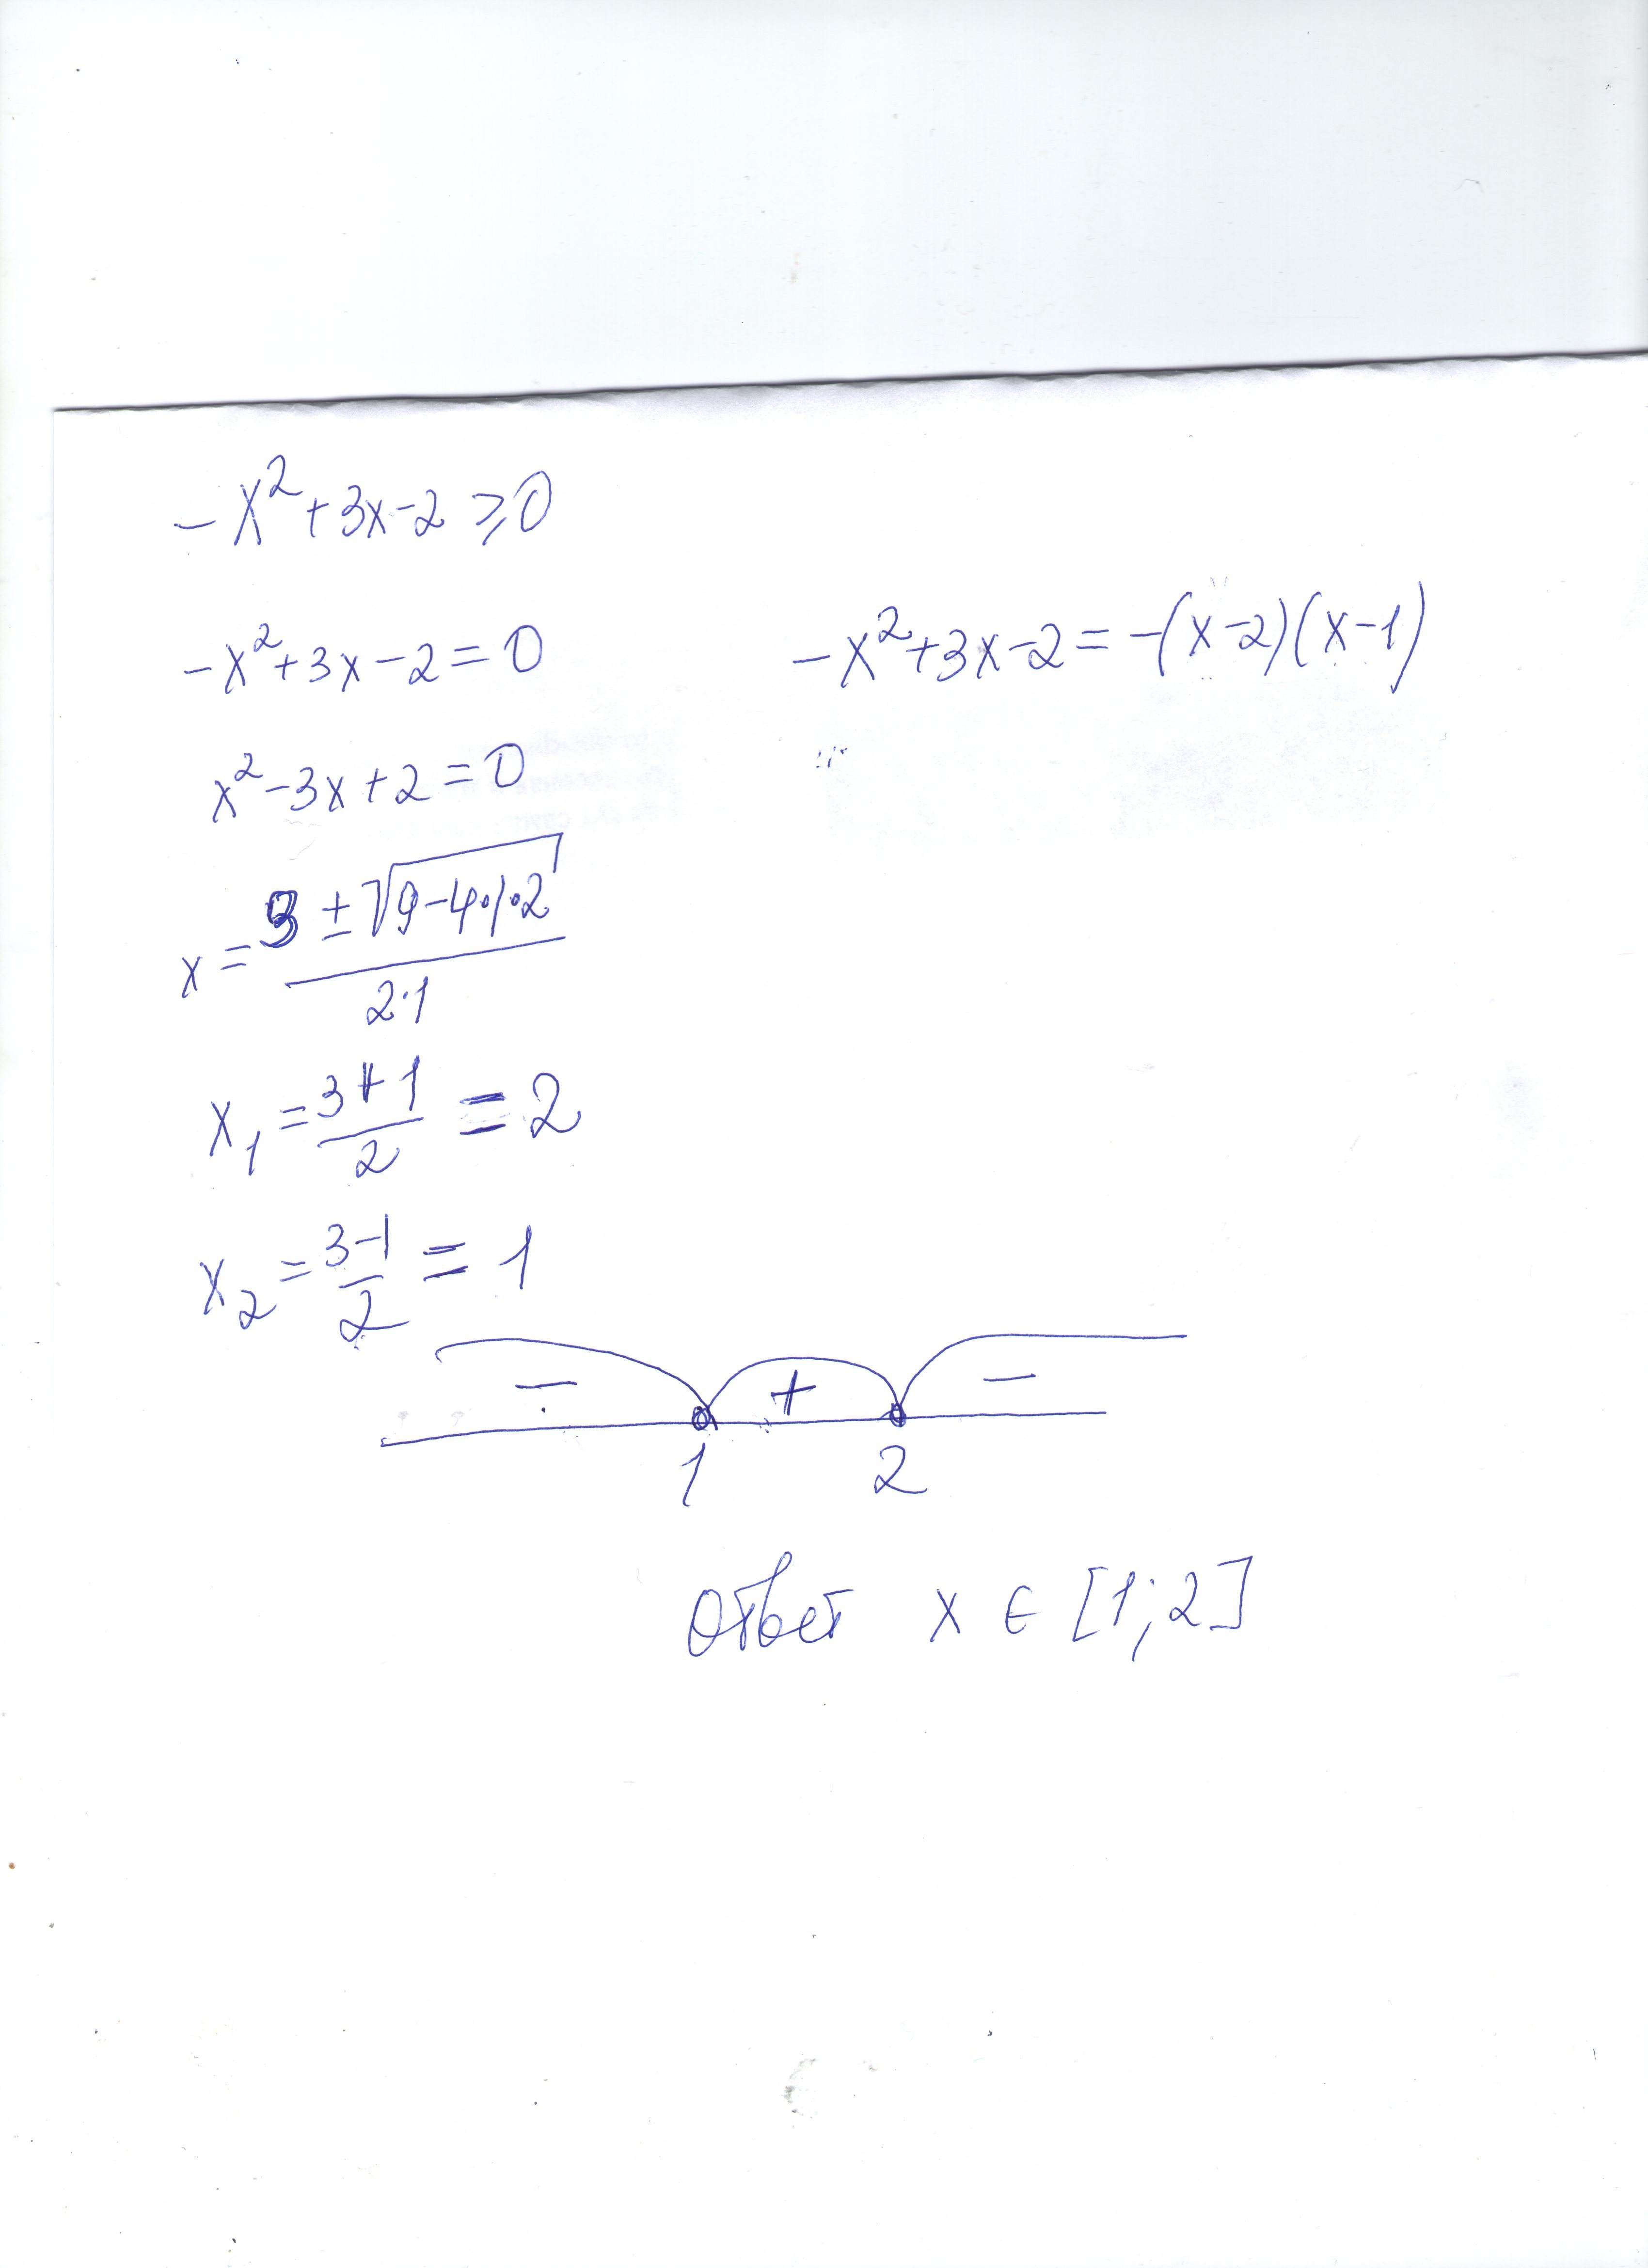 -x²+3x-2 ≥0
-x²+3x-2=0
-x²+3x-2=-(x-2)(x-1)
x²-3x+2=0
x=3±√9-4·1·2
2·1
x₁=3+1/2=2
x₂=3-1/2=1
- + -
1 2
Ответ x ∈ [1;2]